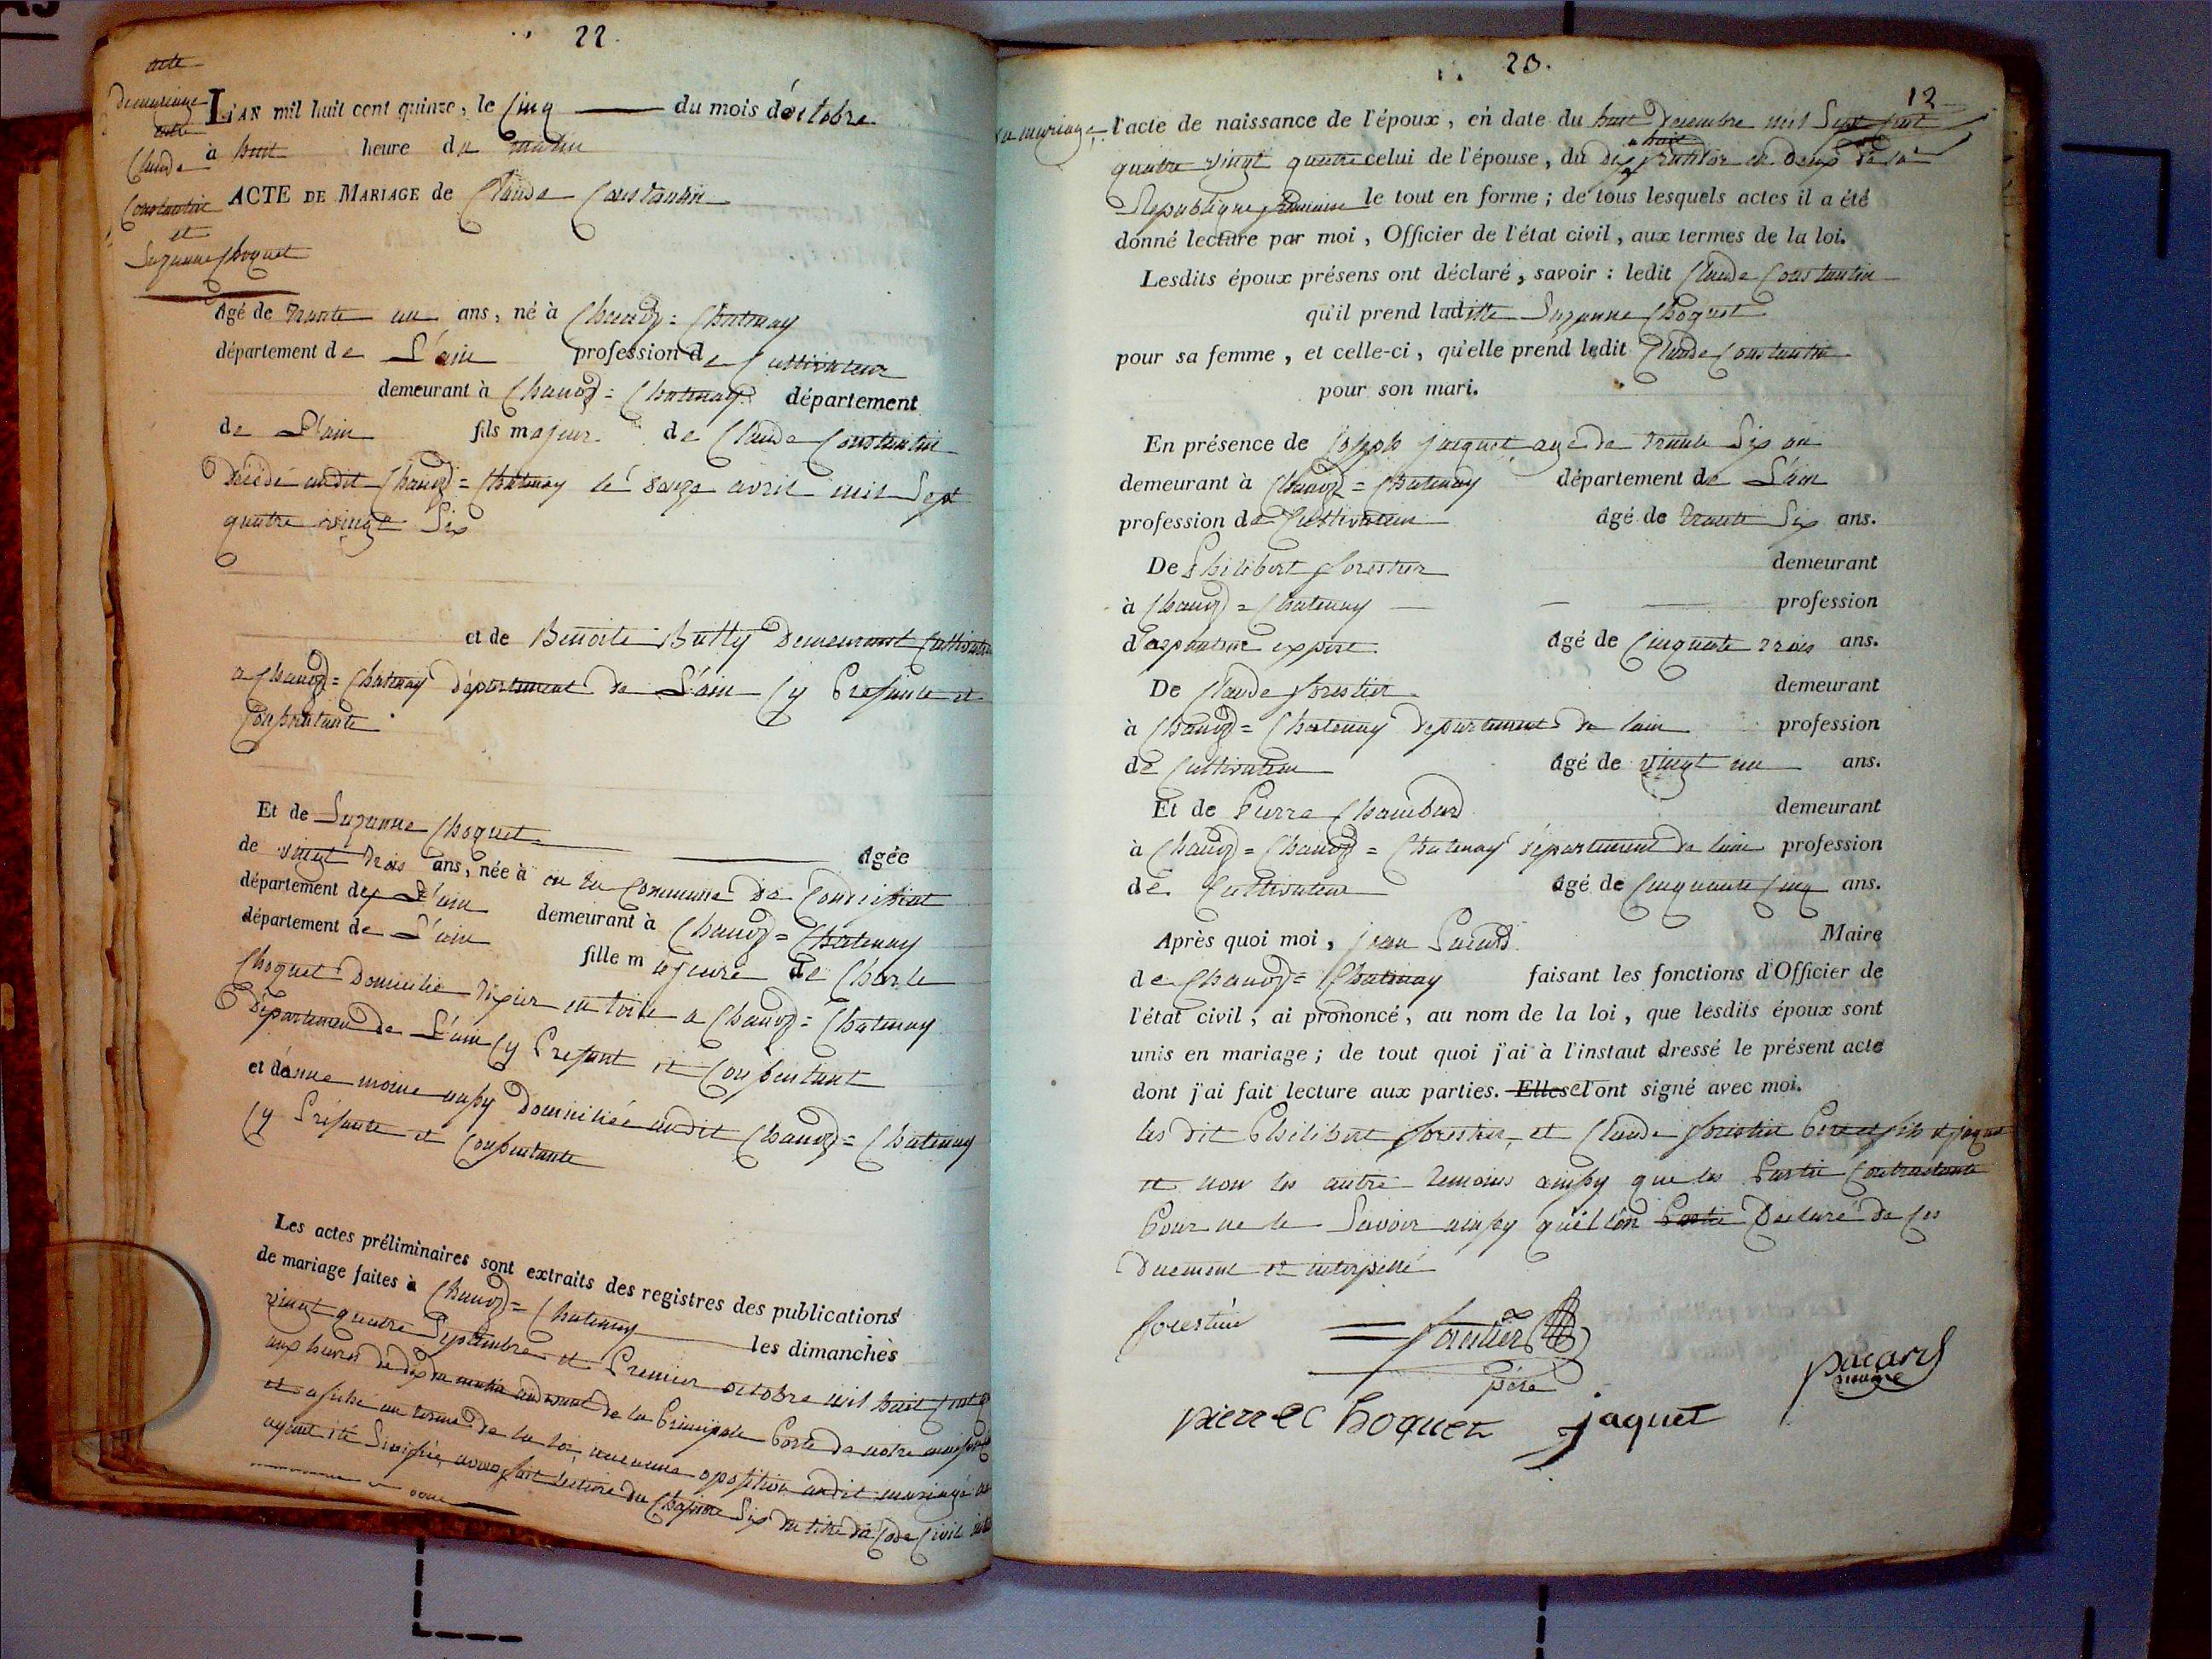 22.
acte
de mariage
entre
Claude
Constantin
et
Suzanne Choquet
L'AN mil huit cent quinze, le Cinq du mois d'octobre
à huit heure du matin
ACTE DE MARIAGE de Claude Constantin
Agé de trante un ans, né à Chanoz=Chatenay
département de L'ain profession de Cultivateur
demeurant à Chanoz=Chatenay département
de L'ain fils majeur de Claude Constantin
décédé audit Chanoz=Chatenay le avril mil Sept
quatre vingt Six
et de Benoite Butty demeurant
a Chanoz=Chatenay département de L'ain Cy Presante et
Consentante
Et de Suzanne Choquet Agée
de vingt trois ans, née à en la Commune de Condeissiat
département de L'ain demeurant à Chanoz=Chatenay
département de L'ain fille majeure de Charle
Choquet domicilié tixier en toile a Chanoz=Chatenay
département de L'ain Cy Presant et Consentant
et d'anne moine aussy domiciliée audit Chanoz=Chatenay
Cy Présante et Consentante
Les actes préliminaires sont extraits des registres des publications
de mariage faites à Chanoz=Chatenay les dimanches
vingt quatre Septembre et Premier octobre mil huit Cent
aux heures de dix du matin audevant de la Principale Porte de notre maison
et afiché au terme de la loi, aucune oposition audit mariage
ayant été Sinifiée, avons fait lecture du Chapitre Six du titre du Code Civil
23.
12
du mariage, l'acte de naissance de l'époux, en date du huit decembre mil Sept
quatre vingt quatre celui de l'épouse, du dix huit en deux de la
Republique francaise le tout en forme ; de tous lesquels actes il a été
donné lecture par moi, Officier de l'état civil, aux termes de la loi.
Lesdits époux présens ont déclaré, savoir : ledit Claude Constantin
qu'il prend laditte Suzanne Choquet
pour sa femme, et celle-ci, qu'elle prend ledit Claude Constantin
pour son mari.
En présence de Joseph jacquet agé de trante Six an
demeurant à Chanoz=Chatenay département de L'ain
profession de Cultivateur âgé de trante Six ans.
De Philibert forestier demeurant
à Chanoz=Chatenay profession
d'arpenteur expert âgé de Cinquante trois ans.
De Claude forestier demeurant
à Chanoz=Chatenay departement de lain profession
de Cultivateur âgé de vingt un ans.
Et de Pierre Chambard demeurant
à Chanoz=Chanoz=Chatenay département de lain profession
de Cultivateur âgé de Cinquante Cinq ans.
Après quoi moi, jean Pacard Maire
de Chanoz=Chatenay faisant les fonctions d'Officier de
l'état civil, ai prononcé, au nom de la loi, que lesdits époux sont
unis en mariage ; de tout quoi j'ai à l'instaut dressé le présent acte
dont j'ai fait lecture aux parties. Elles et ont signé avec moi.
les dit Philibert forestier, et Claude forestier Pere et fils et jaquet
et non les autre temoins ainssy que les Partie Contractante
Pour ne le Savoir ainssy qu'il lon Partie Declaré de Ces
duement et interpellé
forestier forestier
père
pacard
maire
pierre C hoquet jaquet